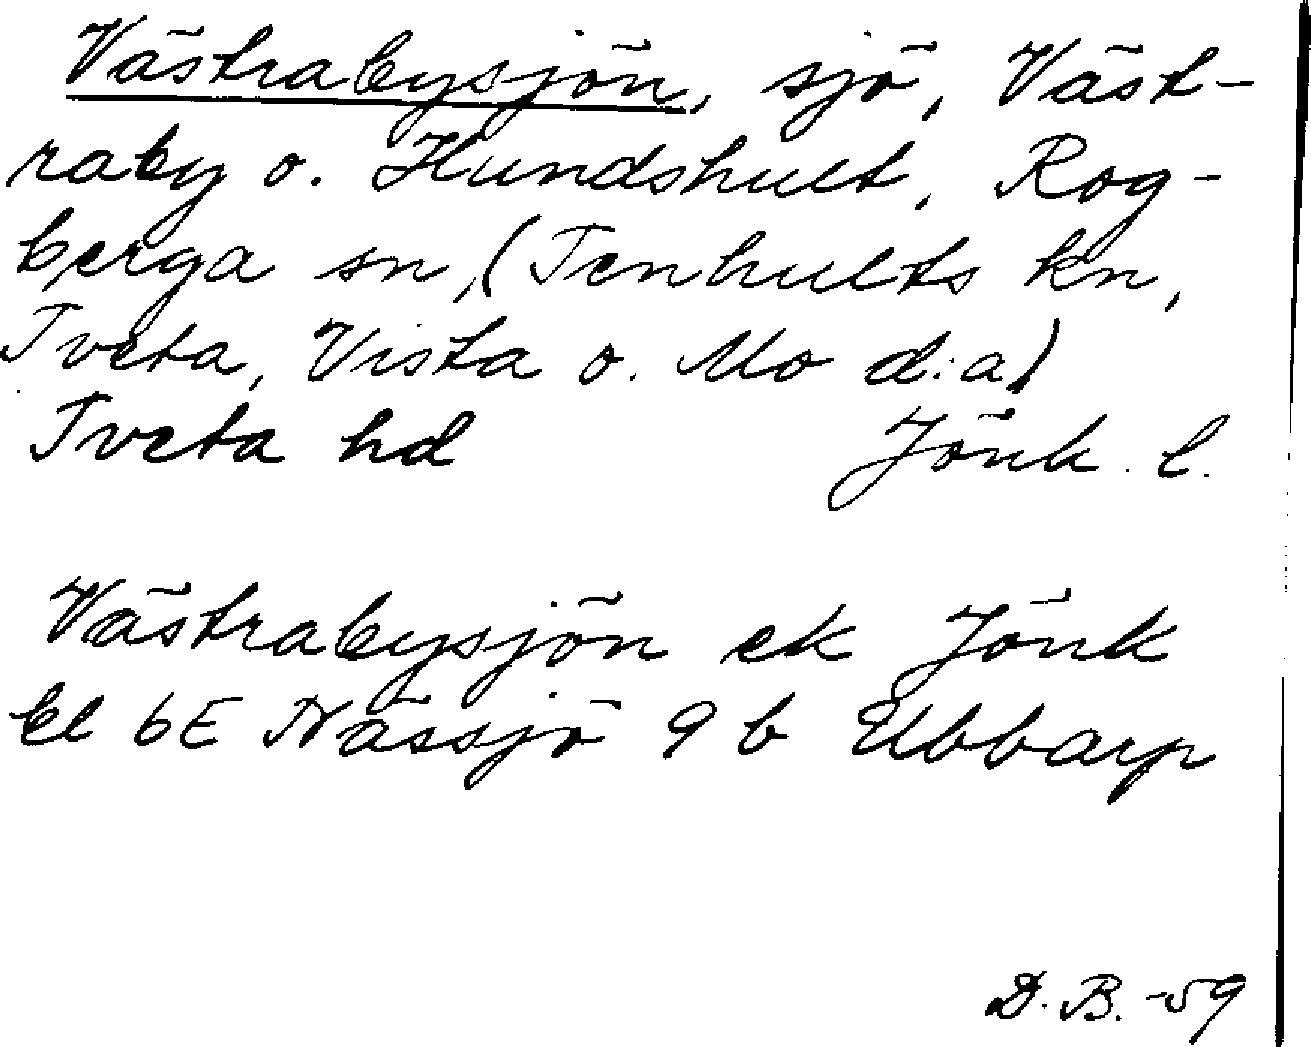 Västrabysjön, sjö, Väst-
raby o. Hundshult, Rog-
berga sn, (Tenhults kn,
Tveta, Vista o. Mo d:a)
Tveta hd Jönk. l.
Västrabysjön ek Jönk
bl 6E Nässjö 9 b Ubbarp
D. B. -59